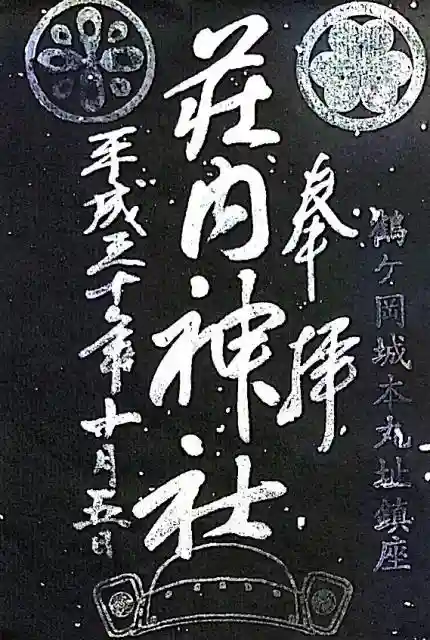 鶴ケ岡城本丸址鎮座
奉拝
荘内神社
平成三十年十月五日